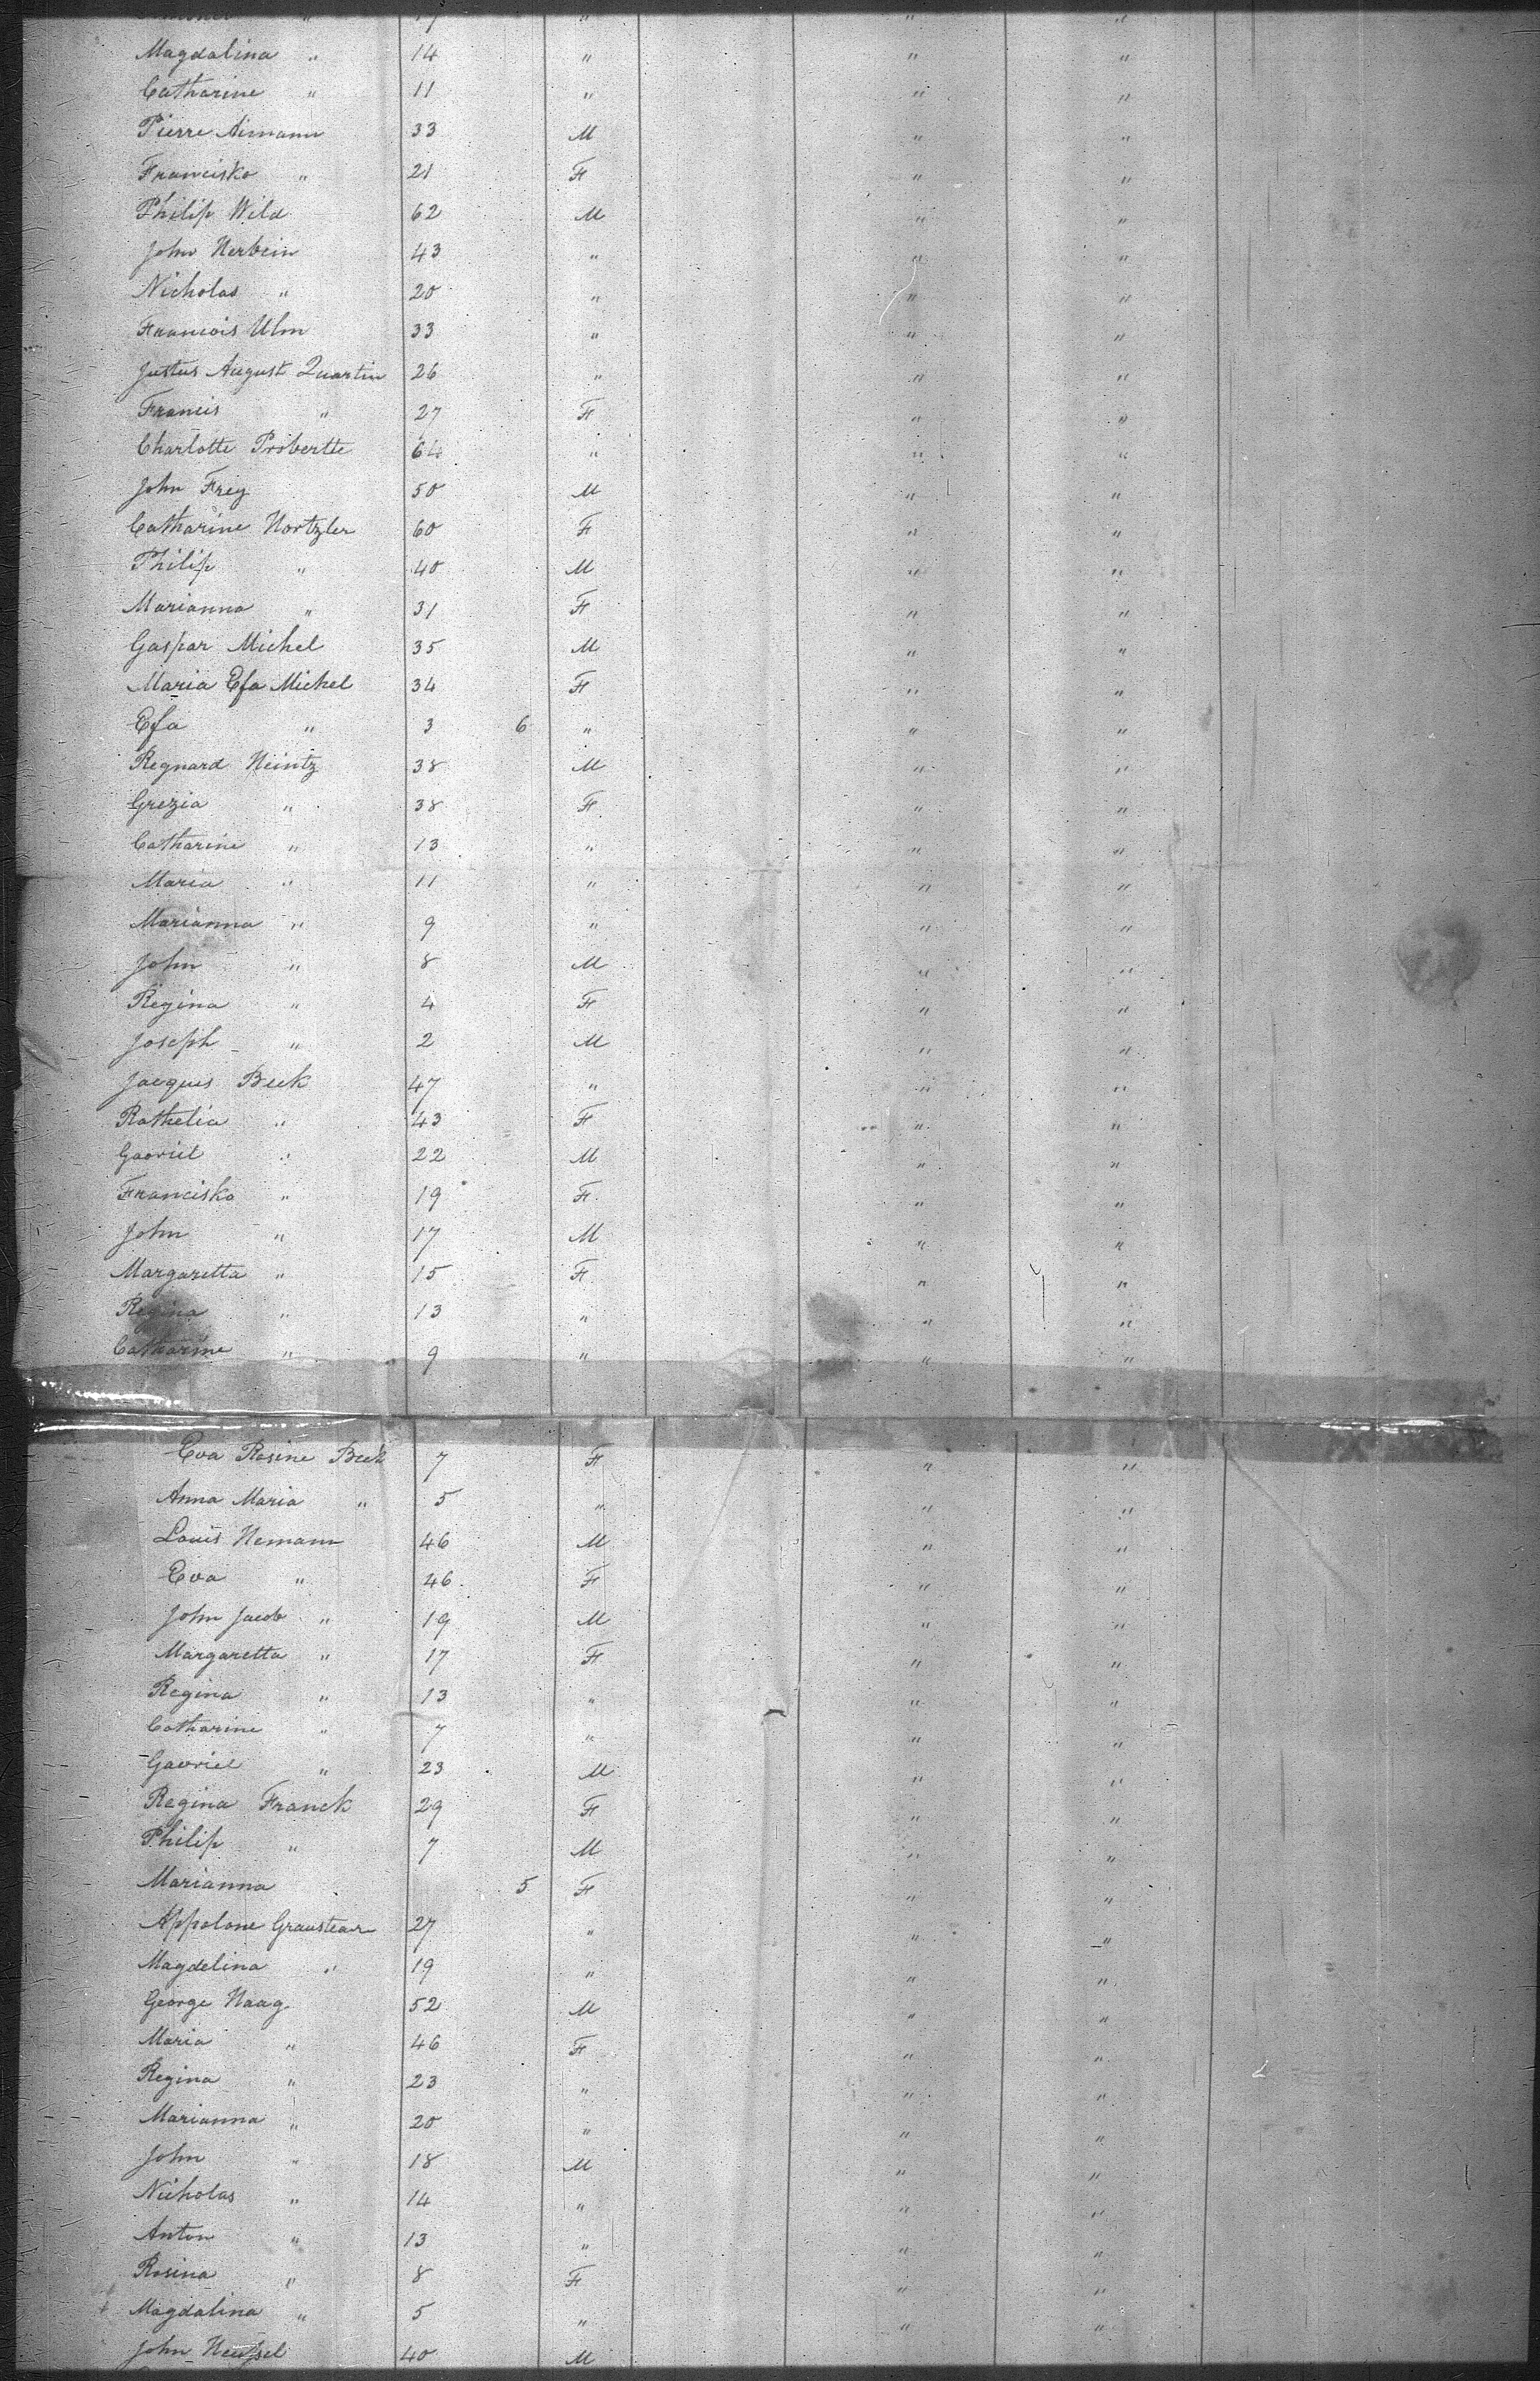 " 17 " " "
Magdalina " 14 " " "
Catharine " 11 " " "
Pierre Aimann 33 M " "
Francisko " 21 F " "
Philip Wild 62 M " "
John Herbein 43 " " "
Nicholas " 20 " " "
Francois Ulm 33 " " "
Justus August Quartin 26 " " "
Francis " 27 F " "
Charlotte Probertte 64 " " "
John Frey 50 M " "
Catharine Hortzler 60 F " "
Philip " 40 M " "
Marianna " 31 F " "
Gaspar Michel 35 M " "
Maria Efa Michel 34 F " "
Efa " 3 6 " " "
Regnard Heintz 38 M " "
Grezia " 38 F " "
Catharine " 13 " " "
Maria " 11 " " "
Marianna " 9 " " "
John " 8 M " "
Regina " 4 F " "
Joseph " 2 M " "
Jacques Beck 47 " " "
Rathelia " 43 F " "
Gavriel " 22 M " "
Francisko " 19 F " "
John " 17 M " "
Margaretta " 15 F " "
Regina " 13 " " "
Catharine " 9 " " "
Eva Rosine Beck 7 F " "
Anna Maria " 5 " " "
Louis Hemann 46 M " "
Eva " 46 F " "
John Jacob " 19 M " "
Margaretta " 17 F " "
Regina " 13 " " "
Catharine " 7 " " "
Gavriel " 23 M " "
Regina Franck 29 F " "
Philip " 7 M " "
Marianna 5 F " "
Appolone Graustear 27 " " "
Magdelina " 19 " " "
George Haag 52 M " "
Maria " 46 F " "
Regina " 23 " " "
Marianna " 20 " " "
John " 18 M " "
Nicholas " 14 " " "
Anton " 13 " " "
Rosina " 8 F " "
Magdalina " 5 " " "
John 40 M